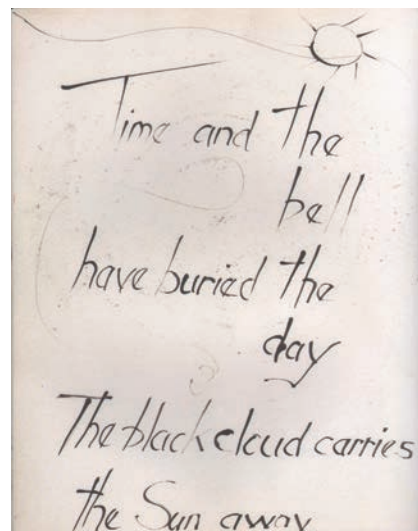 Time and the
bell
have buried the
day
The black cloud carries
the Sun away